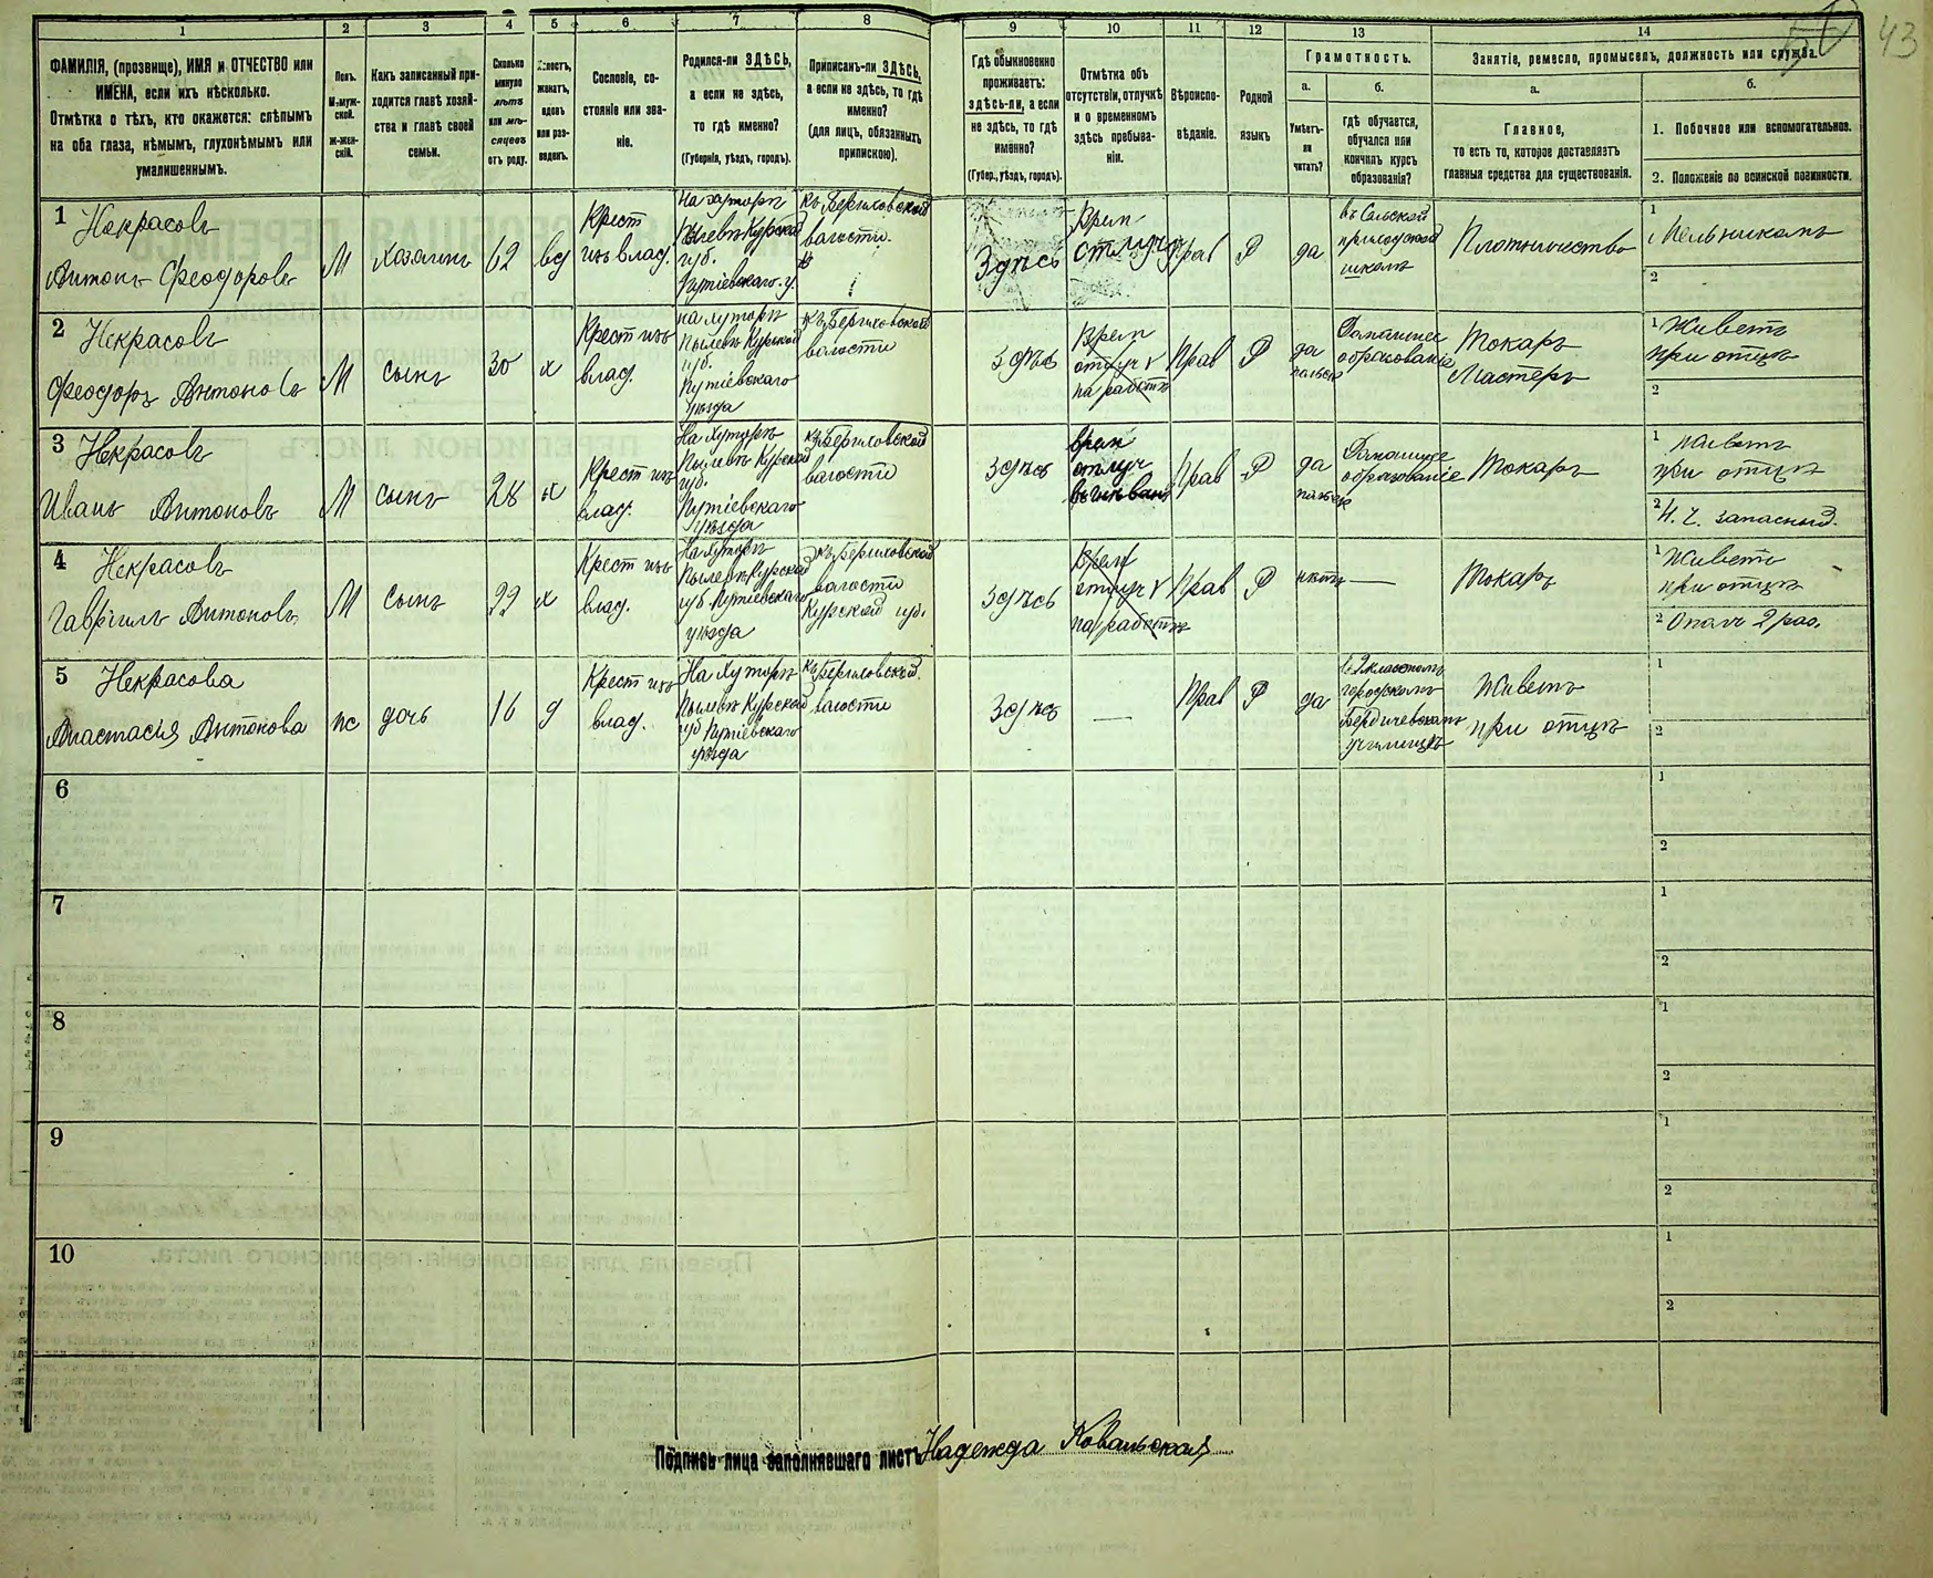 43
1 2 3 4 5 6 7 8 9 10 11 12 13 14
ФАМИЛІЯ, (прозвище), ИМЯ и ОТЧЕСТВО или
ИМЕНА, если ихъ нѣсколько.
Отмѣтка о тѣхъ, кто окажется: слѣпымъ
на оба глаза, нѣмымъ, глухонѣмымъ или
умалишеннымъ.
Полъ.
М-муж-
ской.
Ж-жен-
скій.
Какъ записанный при-
ходится главѣ хозяй-
ства и главѣ своей
семьи.
Сколько
минуло
лѣтъ
или мѣ-
сяцевъ
отъ роду.
Холостъ,
женатъ,
вдовъ
или раз-
веденъ.
Сословіе, со-
стояніе или зва-
ніе.
Родился-ли ЗДѢСЬ,
а если не здѣсь,
то гдѣ именно?
(Губернія, уѣздъ, городъ).
Приписанъ-ли ЗДѢСЬ,
а если не здѣсь, то гдѣ
именно?
(для лицъ, обязанныхъ
припискою).
Гдѣ обыкновенно
проживаетъ:
здѣсь-ли, а если
не здѣсь, то гдѣ
именно?
(Губер., уѣздъ, городъ).
Отмѣтка объ
отсутствіи, отлучкѣ
и о временномъ
здѣсь пребыва-
ніи.
Вѣроиспо-
вѣданіе.
Родной
языкъ
Грамотность.
а.
Умѣетъ-
ли
читать?
б.
Гдѣ обучается,
обучался или
кончилъ курсъ
образованія?
Занятіе, ремесло, промыселъ, должность или служба.
а.
Главное,
то есть то, которое доставляетъ
главныя средства для существованія.
б.
1. Побочное или вспомогательное.
2. Положеніе по воинской повинности.
1 Некрасовъ
Антонъ Феодоровъ
М
хозяинъ
62
вд
Крест
изъ влад.
На хуторѣ
Пылевѣ Курской
губ.
Путивскаго у.
къ Бериловской
волости.
Здѣсь
Врем
отлуч
Прав
Р
да
въ Сельской
приходской
школѣ
Плотничество
1 Мельникомъ
2
2 Некрасовъ
Феодоръ Антоновъ
М
сынъ
30
х
Крест изъ
влад.
на хуторѣ
Пылевѣ Курской
губ.
Путивскаго
уѣзда
къ Бериловской
волости
Здѣсь
Врем
отлуч
на работѣ
Прав
Р
да
Домашнее
образованіе
Токарь
Мастеръ
1 Живетъ
при отцѣ
2
3 Некрасовъ
Иванъ Антоновъ
М
сынъ
28
х
Крест изъ
влад.
На хуторѣ
Пылевѣ Курской
губ.
Путивскаго
уѣзда
къ Бериловской
волости
Здѣсь
врем
отлуч
Прав
Р
да
Домашнее
образованіе
Токарь
1 живетъ
при отцѣ
2 Н. Ч. запасный.
4 Некрасовъ
Гавріилъ Антоновъ
М
Сынъ
22
х
Крест изъ
влад.
На хуторѣ
Пылевѣ Курской
губ. Путивскаго
уѣзда
къ Бериловской
волости
Курской губ.
Здѣсь
Врем
отлуч
на работѣ
Прав
Р
нѣтъ —
Токарь
1 Живетъ
при отцѣ
2 Ополч 2 раз.
5 Некрасова
Анастасія Антонова
ж
дочь
16
д
Крест изъ
влад.
На хуторѣ
Пылевѣ Курской
губ Путивскаго
уѣзда
къ Бериловской
волости
Здѣсь
—
Прав
Р
да
въ 2 классномъ
городскомъ
Бердичевскомъ
училищѣ
Живетъ
при отцѣ
1
2
6
1
2
7
1
2
8
1
2
9
1
2
10
1
2
Подпись лица заполнявшаго листъ Надежда Ковальская